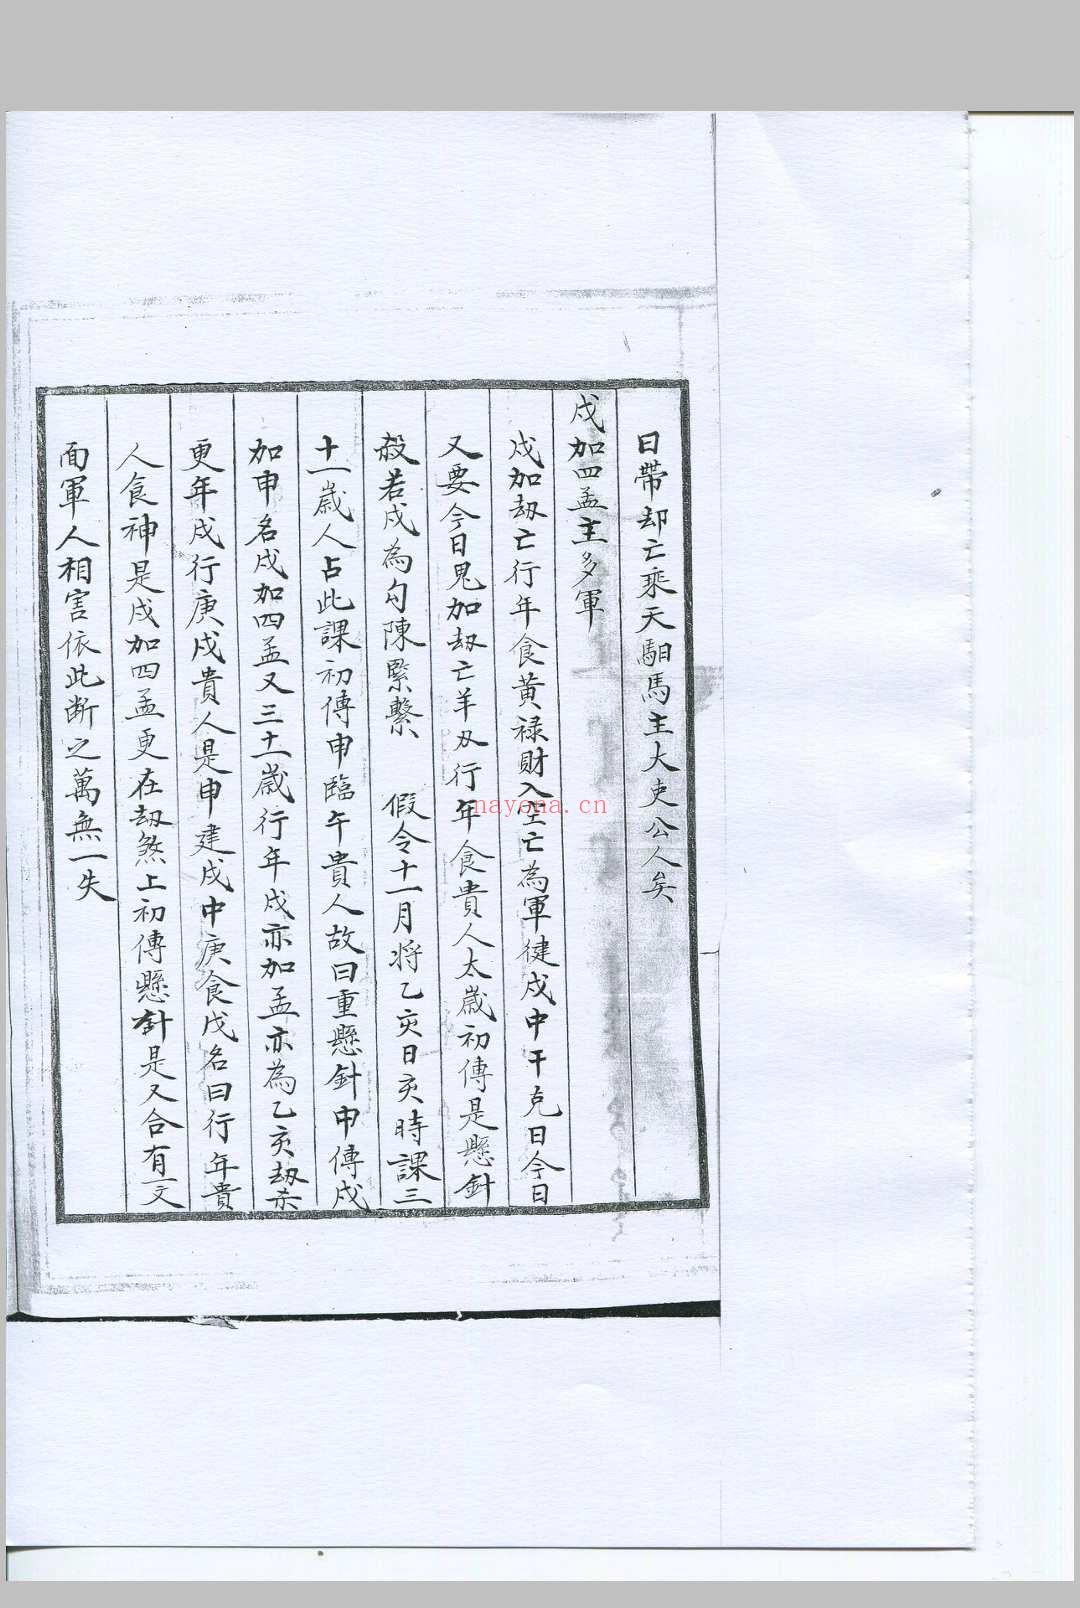 日帶却亡乘天馹馬主大吏公人矣
戍加四孟主多軍
戍加刼亡行年食黃禄財入空亡為軍健戍中干克日今日
又要今日鬼加刼亡羊刄行年食貴人太歲初傳是懸針
殺若戍為勾陳緊繫 假令十一月將乙亥日亥時課三
十一歲人占此課初傳申臨午貴人故曰重懸針申傳戍
加申名戍加四孟又三十一歲行年戍亦加孟亦為乙亥刼杀
更年戍行庚戍貴人是申建戍中庚食戍名曰行年貴
人食神是戍加四孟更在刼煞上初傳懸針是又合有一文
面軍人相害依此断之萬無一失
nayona.cn